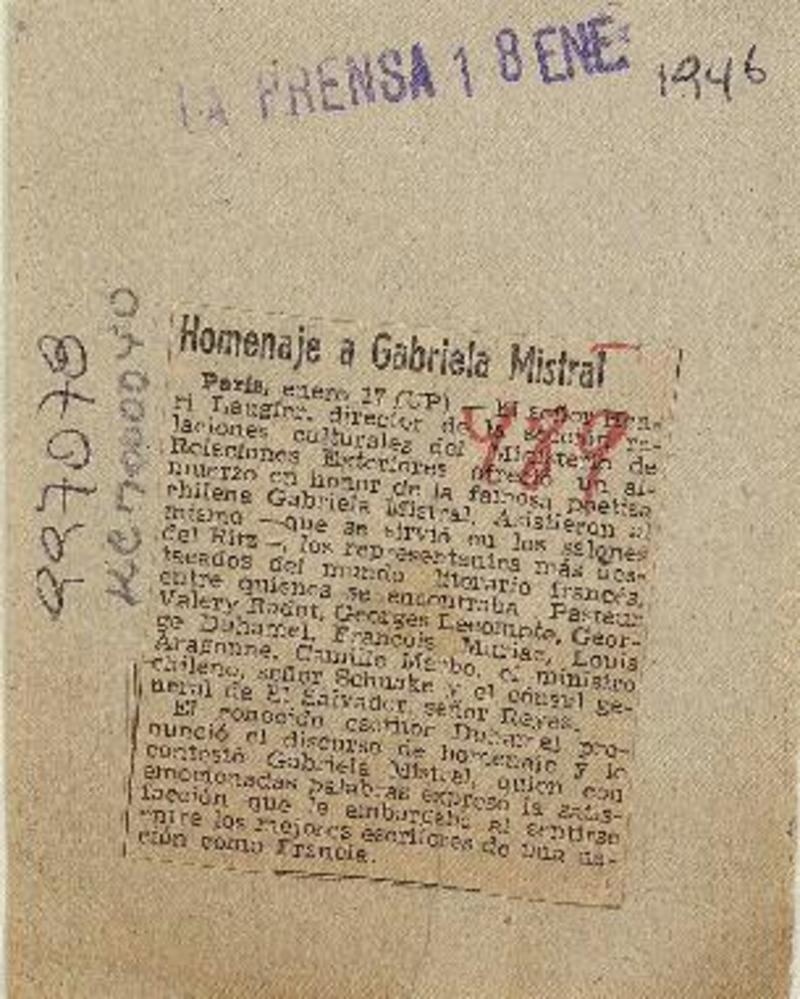 LA PRENSA 18 ENE. 1946
Homenaje a Gabriela Mistral
París, enero 17 (UP) — El señor Hen-
ri Laugier, director de la sección re-
laciones culturales del Ministerio de
Relaciones Exteriores ofreció un al-
muerzo en honor de la famosa poetisa
chilena Gabriela Mistral. Asistieron al
mismo —que se sirvió en los salones
del Ritz—, los representantes más des-
tacados del mundo literario francés,
entre quienes se encontraba Pasteur
Valery Radot, Georges Lecompte, Geor-
ge Duhamel, Francois Muriac, Louis
Aragonne, Camille Marbo, el ministro
chileno, señor Schnake y el cónsul ge-
neral de El Salvador, señor Reyes.
El conocido escritor Duhamel pro-
nunció el discurso de homenaje y le
contestó Gabriela Mistral, quien con
emocionadas palabras expresó la satis-
facción que le embargaba al sentirse
entre los mejores escritores de una na-
ción como Francia.
489
997078